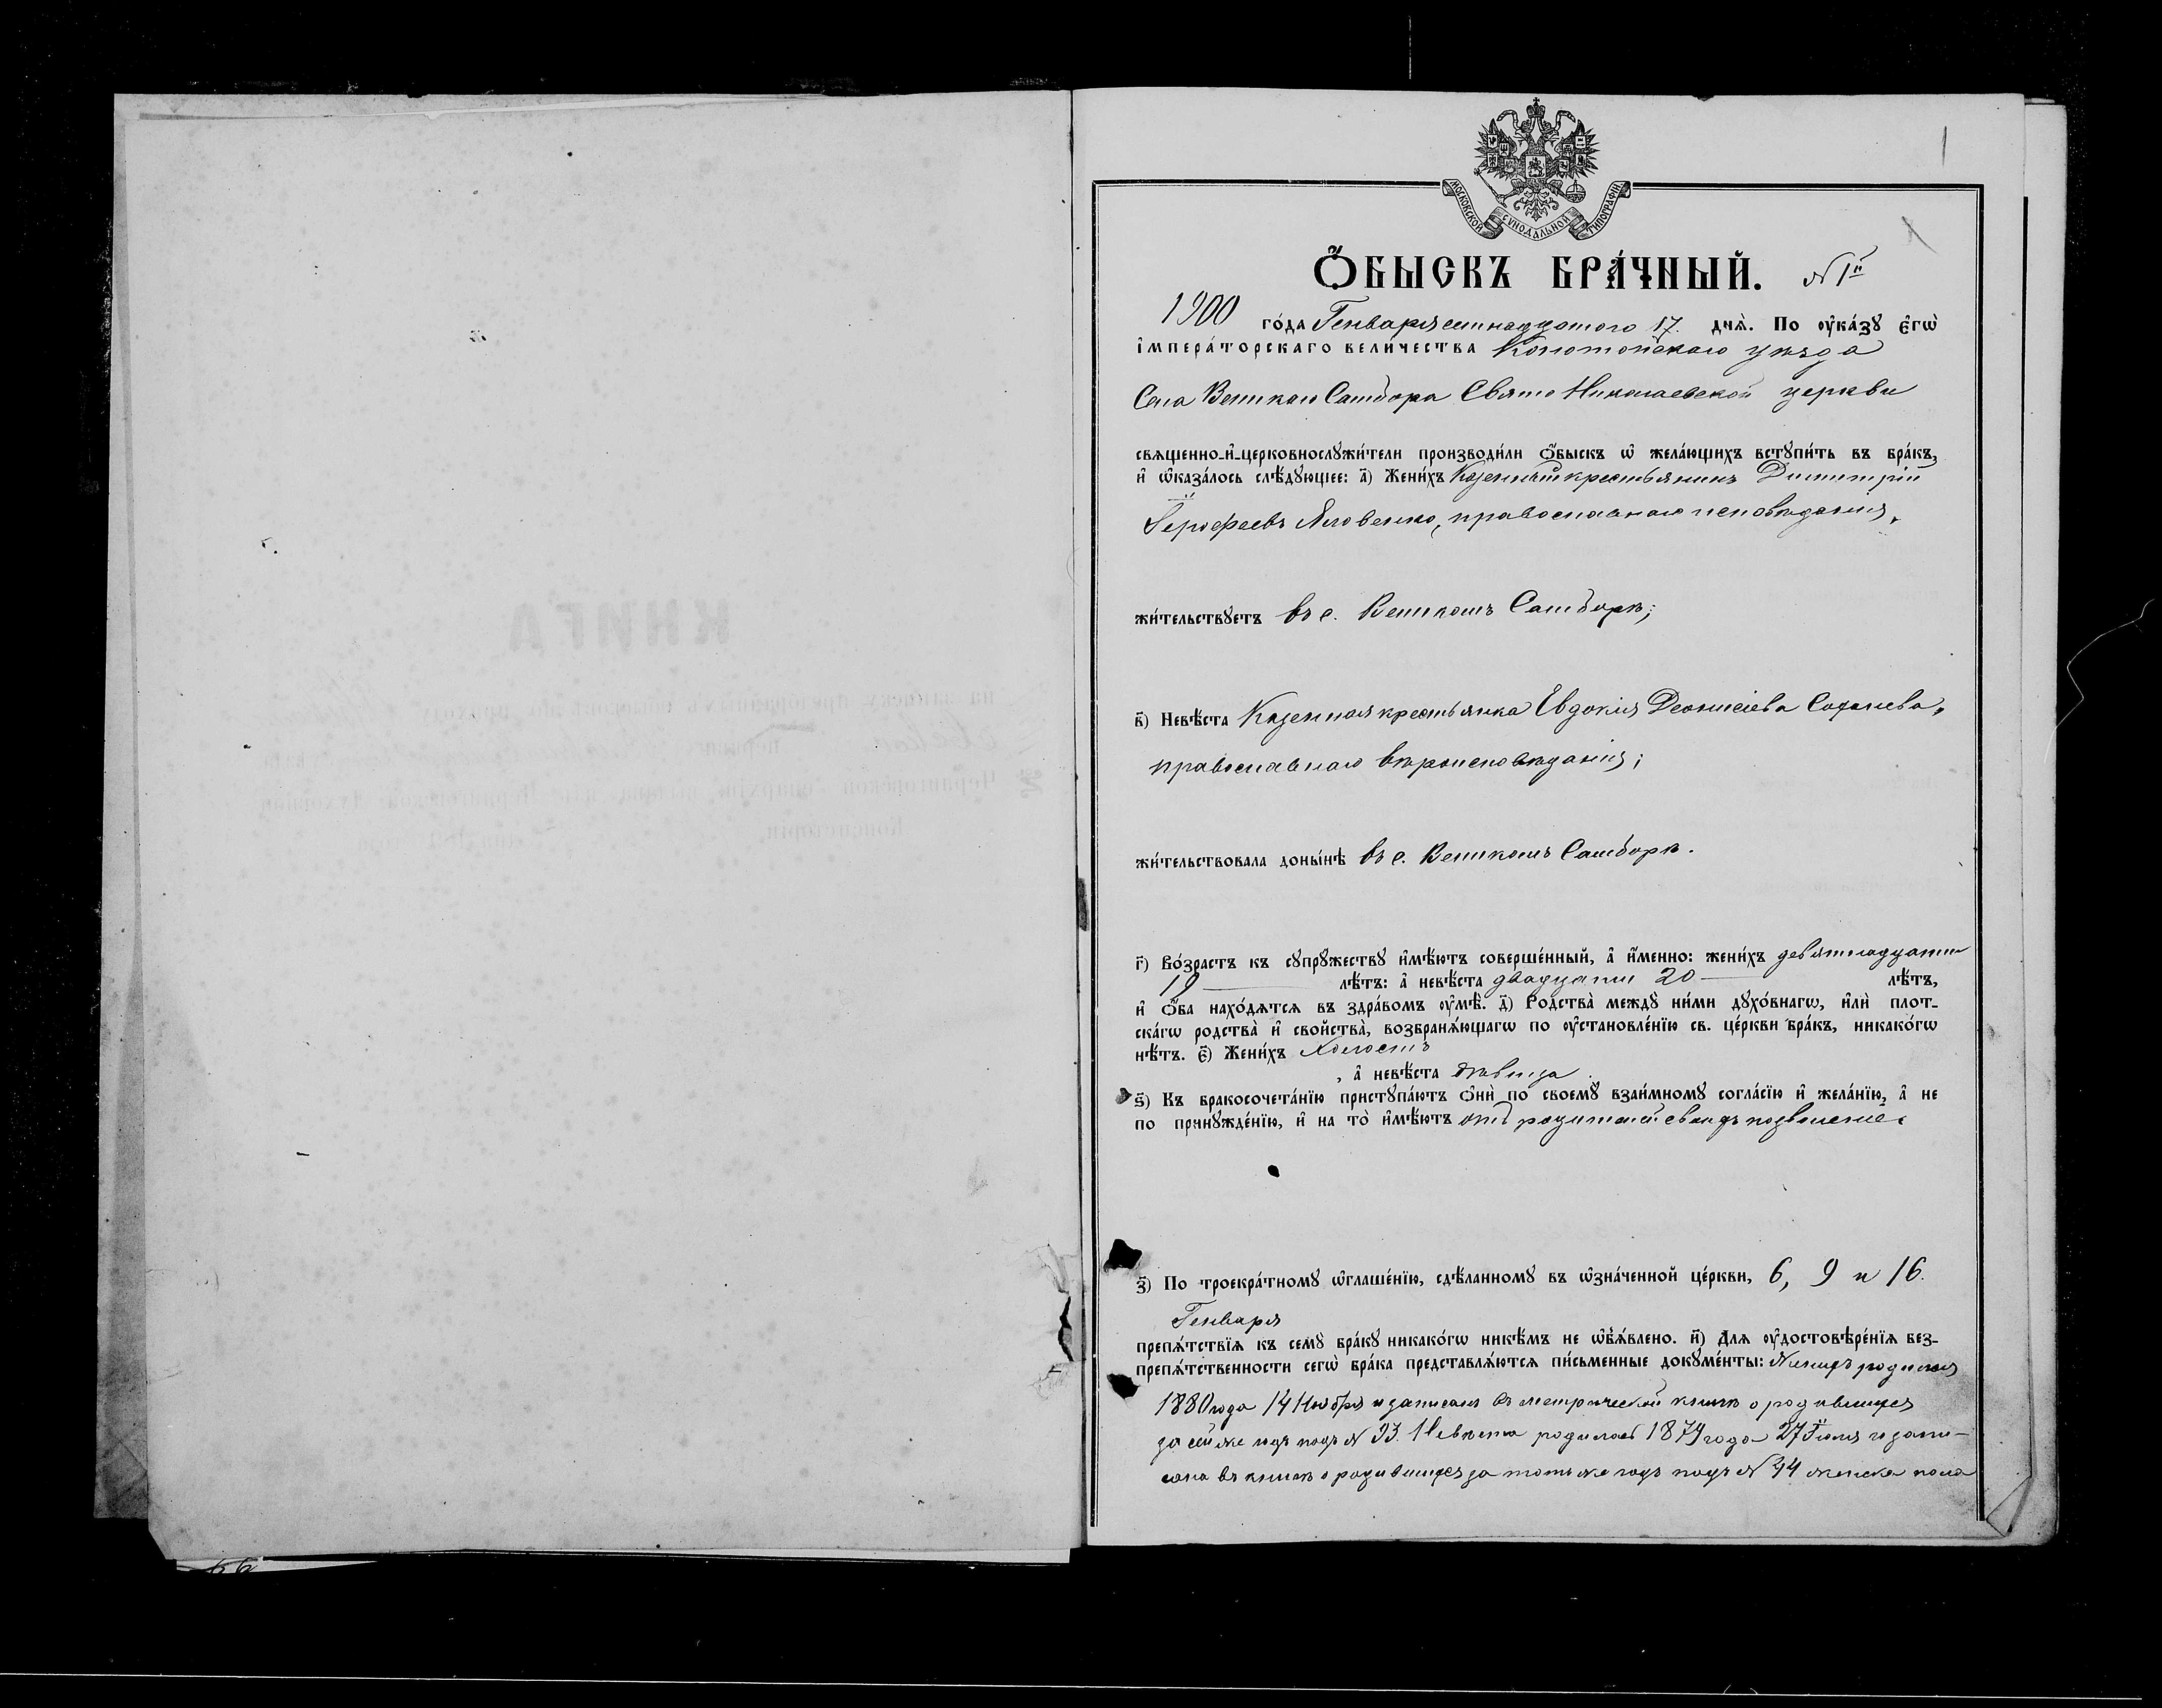 1
МОСКОВСКОЙ СѴНОДАЛЬНОЙ ТИПОГРАФІИ
Ѻ҆БЫСКЪ БРА́ЧНЫЙ. № 1й
1900 го́да Генваря семнадцатого 17. днѧ̀. По оу҆ка́зꙋ є҆гѡ̀
і҆мпера́торскагѡ вели́чества Конотопскаго уѣзда
Села Великаго Самбора Свято Николаевской церкви
священно-и҆-церковнослꙋжи́тели производи́ли ѻ҆́быскъ ѡ҆ жела́ющихъ встꙋпи́ть въ бра́къ,
и҆ ѡ҆каза́лось слѣ́дꙋющее: а҃) Жени́хъ Казенный крестьянинъ Димитрій
Іерофеевъ Яловенко, православнаго исповѣданія,
жи́тельствꙋетъ въ с. Великомъ Самборѣ;
в҃) Невѣ́ста Казенная крестьянка Евдокія Деонисіева
православнаго вѣроисповѣданія;
жи́тельствовала доны́нѣ въ с. Великомъ Самборѣ.
г҃) Во́зрастъ къ сꙋпрꙋ́жествꙋ и҆мѣ́ютъ соверше́нный, а҆ и҆́менно: жени́хъ девятнадцати
19 лѣ́тъ: а҆ невѣ́ста двадцати 20 лѣ́тъ,
и҆ ѻ҆́ба нахо́дятся въ здра́вомъ оу҆мѣ̀. д҃) Родства̀ междꙋ̀ ни́ми дꙋхо́внагѡ, и҆лѝ плот-
ска́гѡ родства̀ и҆ свойства̀, возбраня́ющагѡ по оу҆становле́нїю св. це́ркви бра́къ, никако́гѡ
нѣ́тъ. є҃) Жени́хъ Холостъ
, а҆ невѣ́ста дѣвица.
ѕ҃) Къ бракосочета́нїю пристꙋпа́ютъ ѻ҆нѝ по своемꙋ̀ взаи́мномꙋ согла́сїю и҆ жела́нїю, а҆ не
по принꙋжде́нїю, и҆ на то̀ и҆мѣ́ютъ отъ родителей своихъ позволеніе.
з҃) По троекра́тномꙋ ѡ҆глаше́нїю, сдѣ́ланномꙋ въ ѡ҆зна́ченной це́ркви, 6, 9 и 16.
Генваря
препя́тствїя къ семꙋ̀ бра́кꙋ никако́гѡ никѣ́мъ не ѡ҆бъя́влено. и҃) Для оу҆достовѣре́нїя без-
препя́тственности сегѡ̀ бра́ка представля́ются пи́сьменные докꙋме́нты: Женихъ родился
1880 года 14 Ноября и записанъ въ метрической книгѣ о родившихся
за сей же годъ подъ № 93. Невѣста родилась 1879 года 27 Іюля и запи-
сана въ книгѣ о родившихся за тотъ же годъ подъ № 44 женска пола
КНИГА